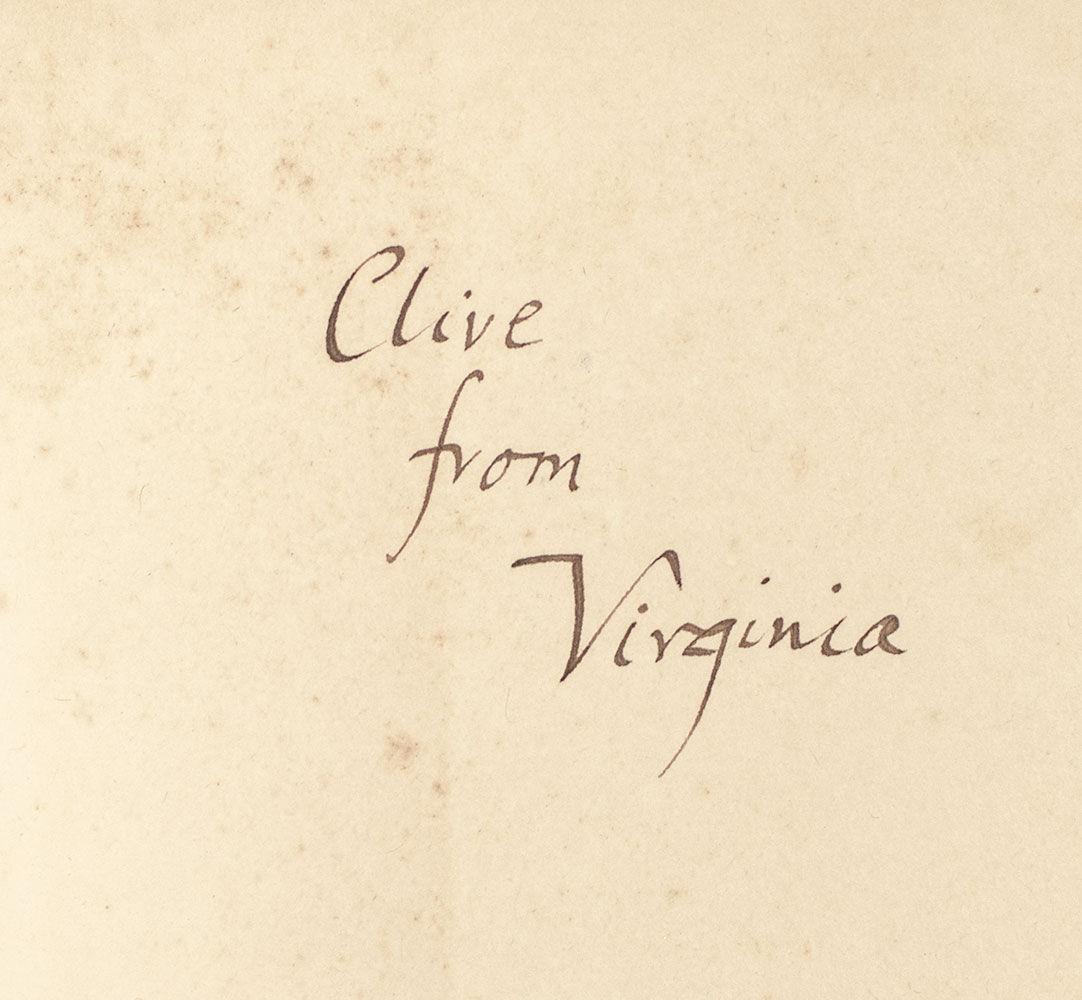 Clive
from
Virginia